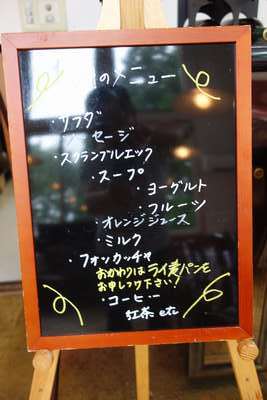 のメニュー
・サラダ
セージ
・スクランブルエッグ
・スープ
・ヨーグルト
・フルーツ
・オレンジジュース
・ミルク
・フォカッチャ
おかわりはライ麦パンを
お申しつけ下さい!
・コーヒー
紅茶 etc